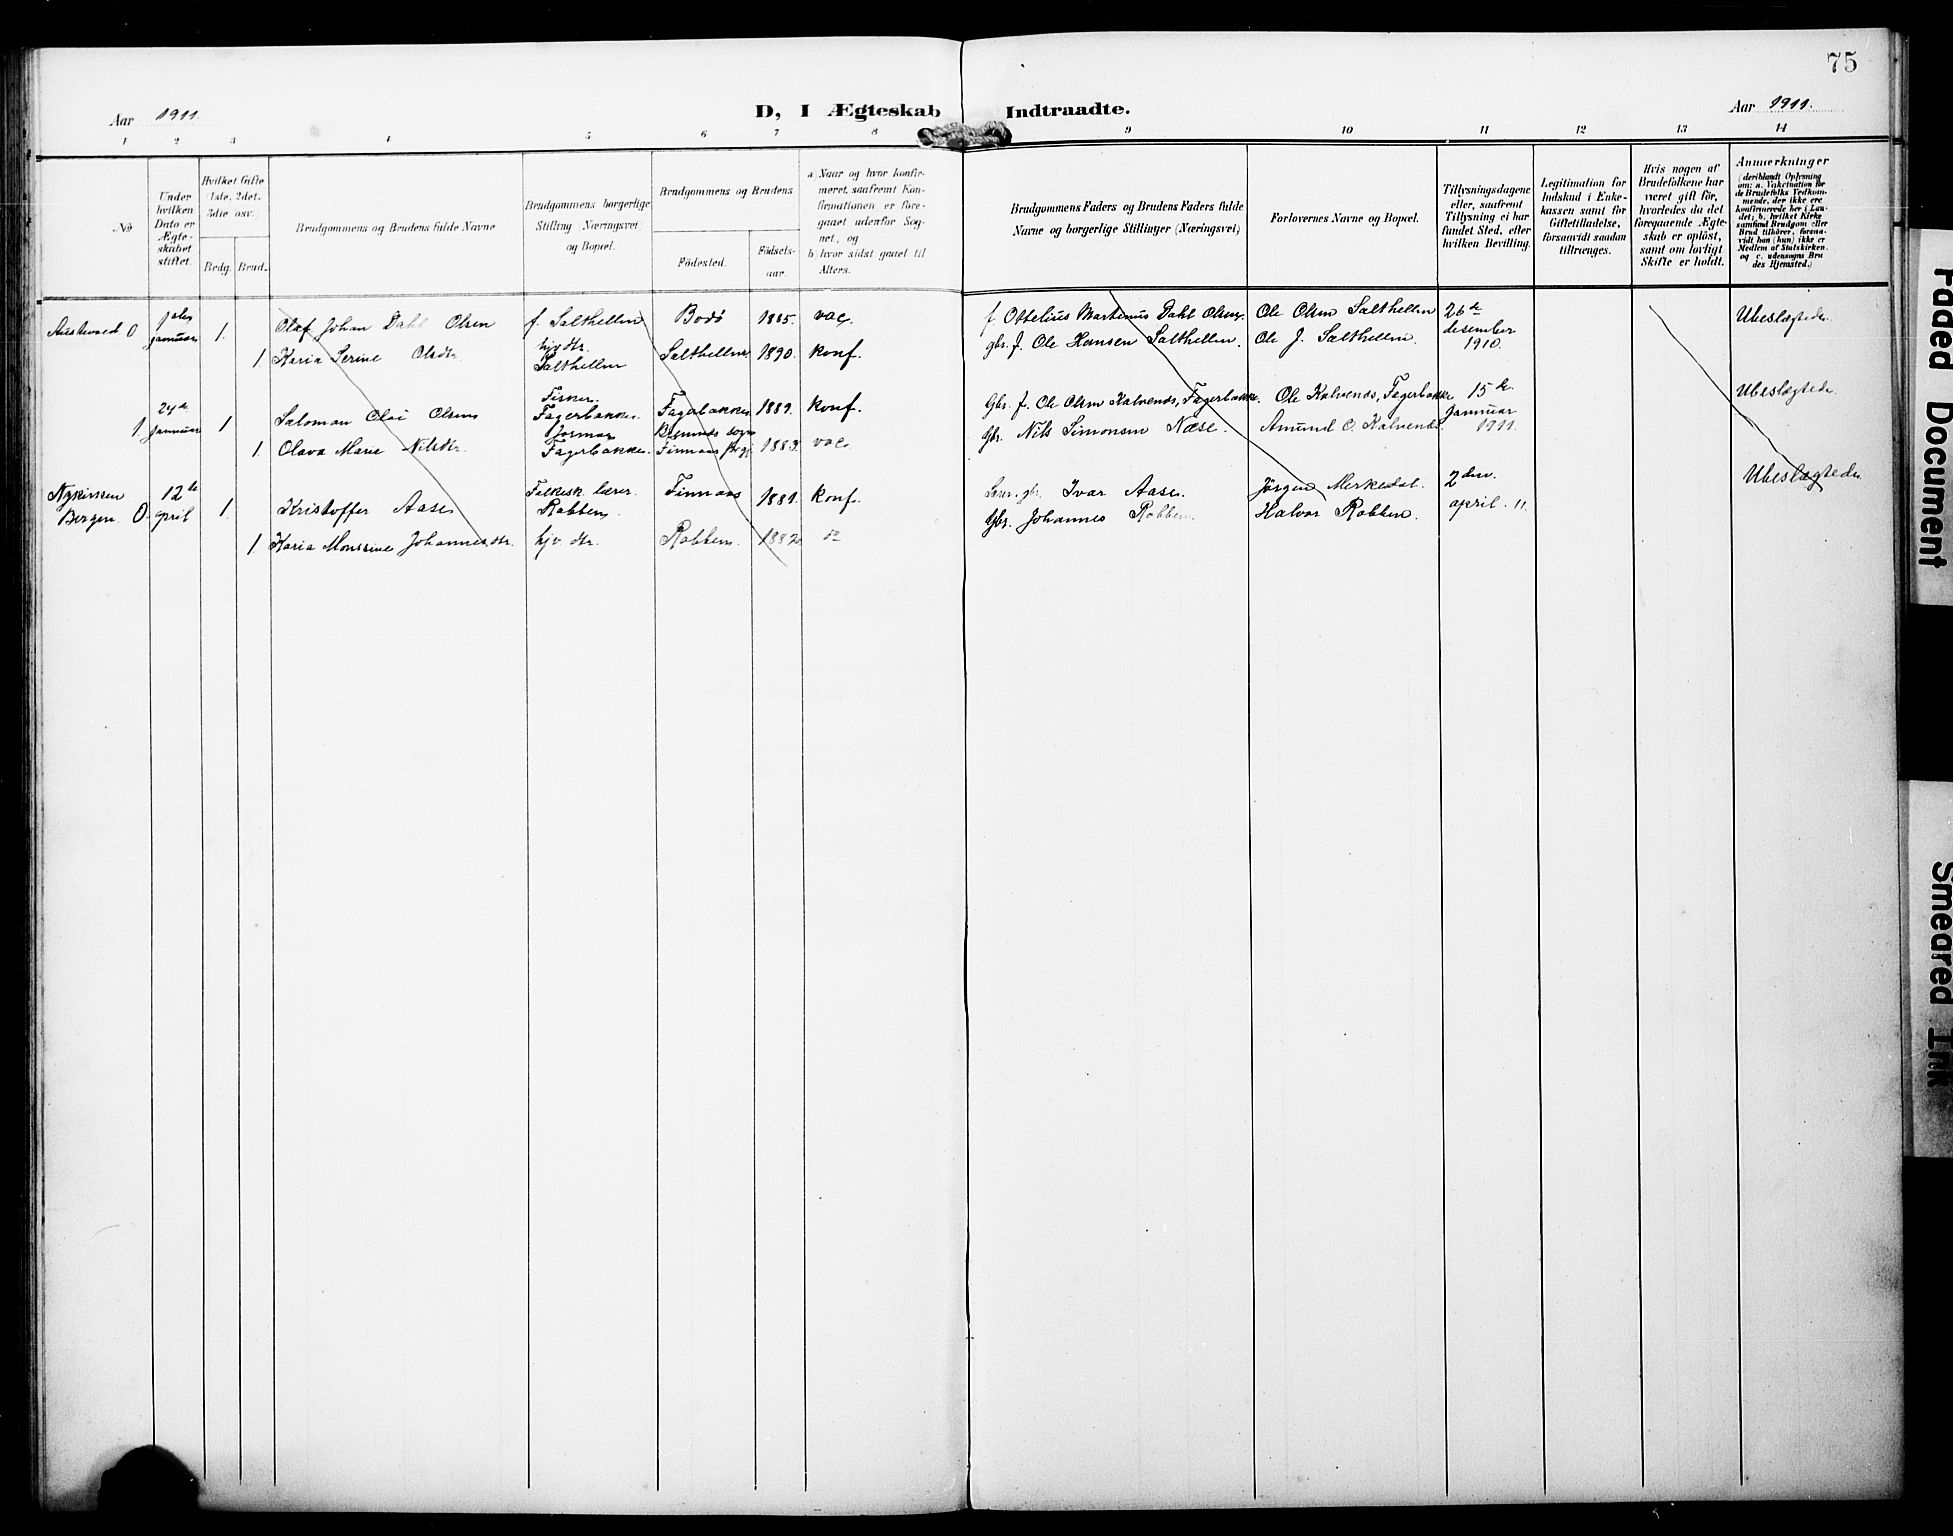 75
Aar 1911.
D, I Ægteskab Indtraadte.
Aar 1911.
1 2 3 4 5 6 7 8 9 10 11 12 13 14
No
Under hvilken Dato er Ægteskabet stiftet.
Hvilket Gifte 1ste, 2det, 3die osv.)
Brdg. Brud.
Brudgommens og Brudens fulde Navne
Brudgommens borgerlige Stilling (Næringsvei) og Bopæl.
Brudgommens og Brudens
Födested.
Födselsaar.
a) Naar og hvor konfirmeret, saafremt Konfirmationen er foregaaet udenfor Sognet, og
b) hvor sidst gaaet til Alters.
Brudgommens Faders og Brudens Faders fulde Navne og borgerlige Stillinger (Næringsvei)
Forlovernes Navne og Bopæl.
Tillysningsdagene eller, saafremt Tillysning ei har fundet Sted, efter hvilken Bevilling.
Legitimation for Indskud i Enkekassen samt for Giftetilladelse, forsaavidt saadan tiltrænges.
Hvis nogen af Brudefolkene har været gift för, hvorledes da det foregaaende Ægteskab er oplöst, samt om lovligt Skifte er holdt.
Anmærkninger
(deriblandt Oplysning om: a. Vakcination for de Brudefolks Vedkommende, der ikke ere konfirmerede her i Landet; b. hvilket Kirkesamfund Brudgom eller Brud tilhörer, forsaavidt han (hun) ikke er Medlem af Statskirken, og c. udensogns Brudes Hjemsted.)
Austevold 0 januar 1. Olaf Johan Dahl Olsen f. Salthellen Bodö 1885. vac. f. Ottelius Martinus Dahl Olsen. Ole Olsen Salthellen 26de desember 1910. Ubeslægtede.
1 Karia Serine Olsdtr. hjv dtr. Salthellen Salthellen 1890. konf. gbr. f. Ole Hansen Salthellen. Ole J. Salthellen.
1 24de januar 1 Saloman Olai Olsen Fisker. Fagerbakke. Fagerbakke. 1889. konf. Gbr. f. Ole Olsen Kalvenes, Fagerbakke. Ole Kalvenes, Fagerbakke 15de Januar 1911. Ubeslægtede.
1 Olava Marie Nilsdtr. Fagerbakke. Bremnes sogn Finnaas prgj. 1883. vac. Gbr. Nils Simonsen Næse. Amund O. Kalvenes.
Nykirken Bergen. 0 12te april 1. Kristoffer Aase Folkesk. lærer. Robben Finnaas 1881. konf. gbr. Ivar Aase. Jörgen Merkedal. 2den april. 11. Ubeslægtede.
1 Karia Monssine Johannesdtr. hjv. dtr. Robben. 1882. do Gbr. Johannes Robben. Halvor Robben.
Faded Document
Smeared Ink